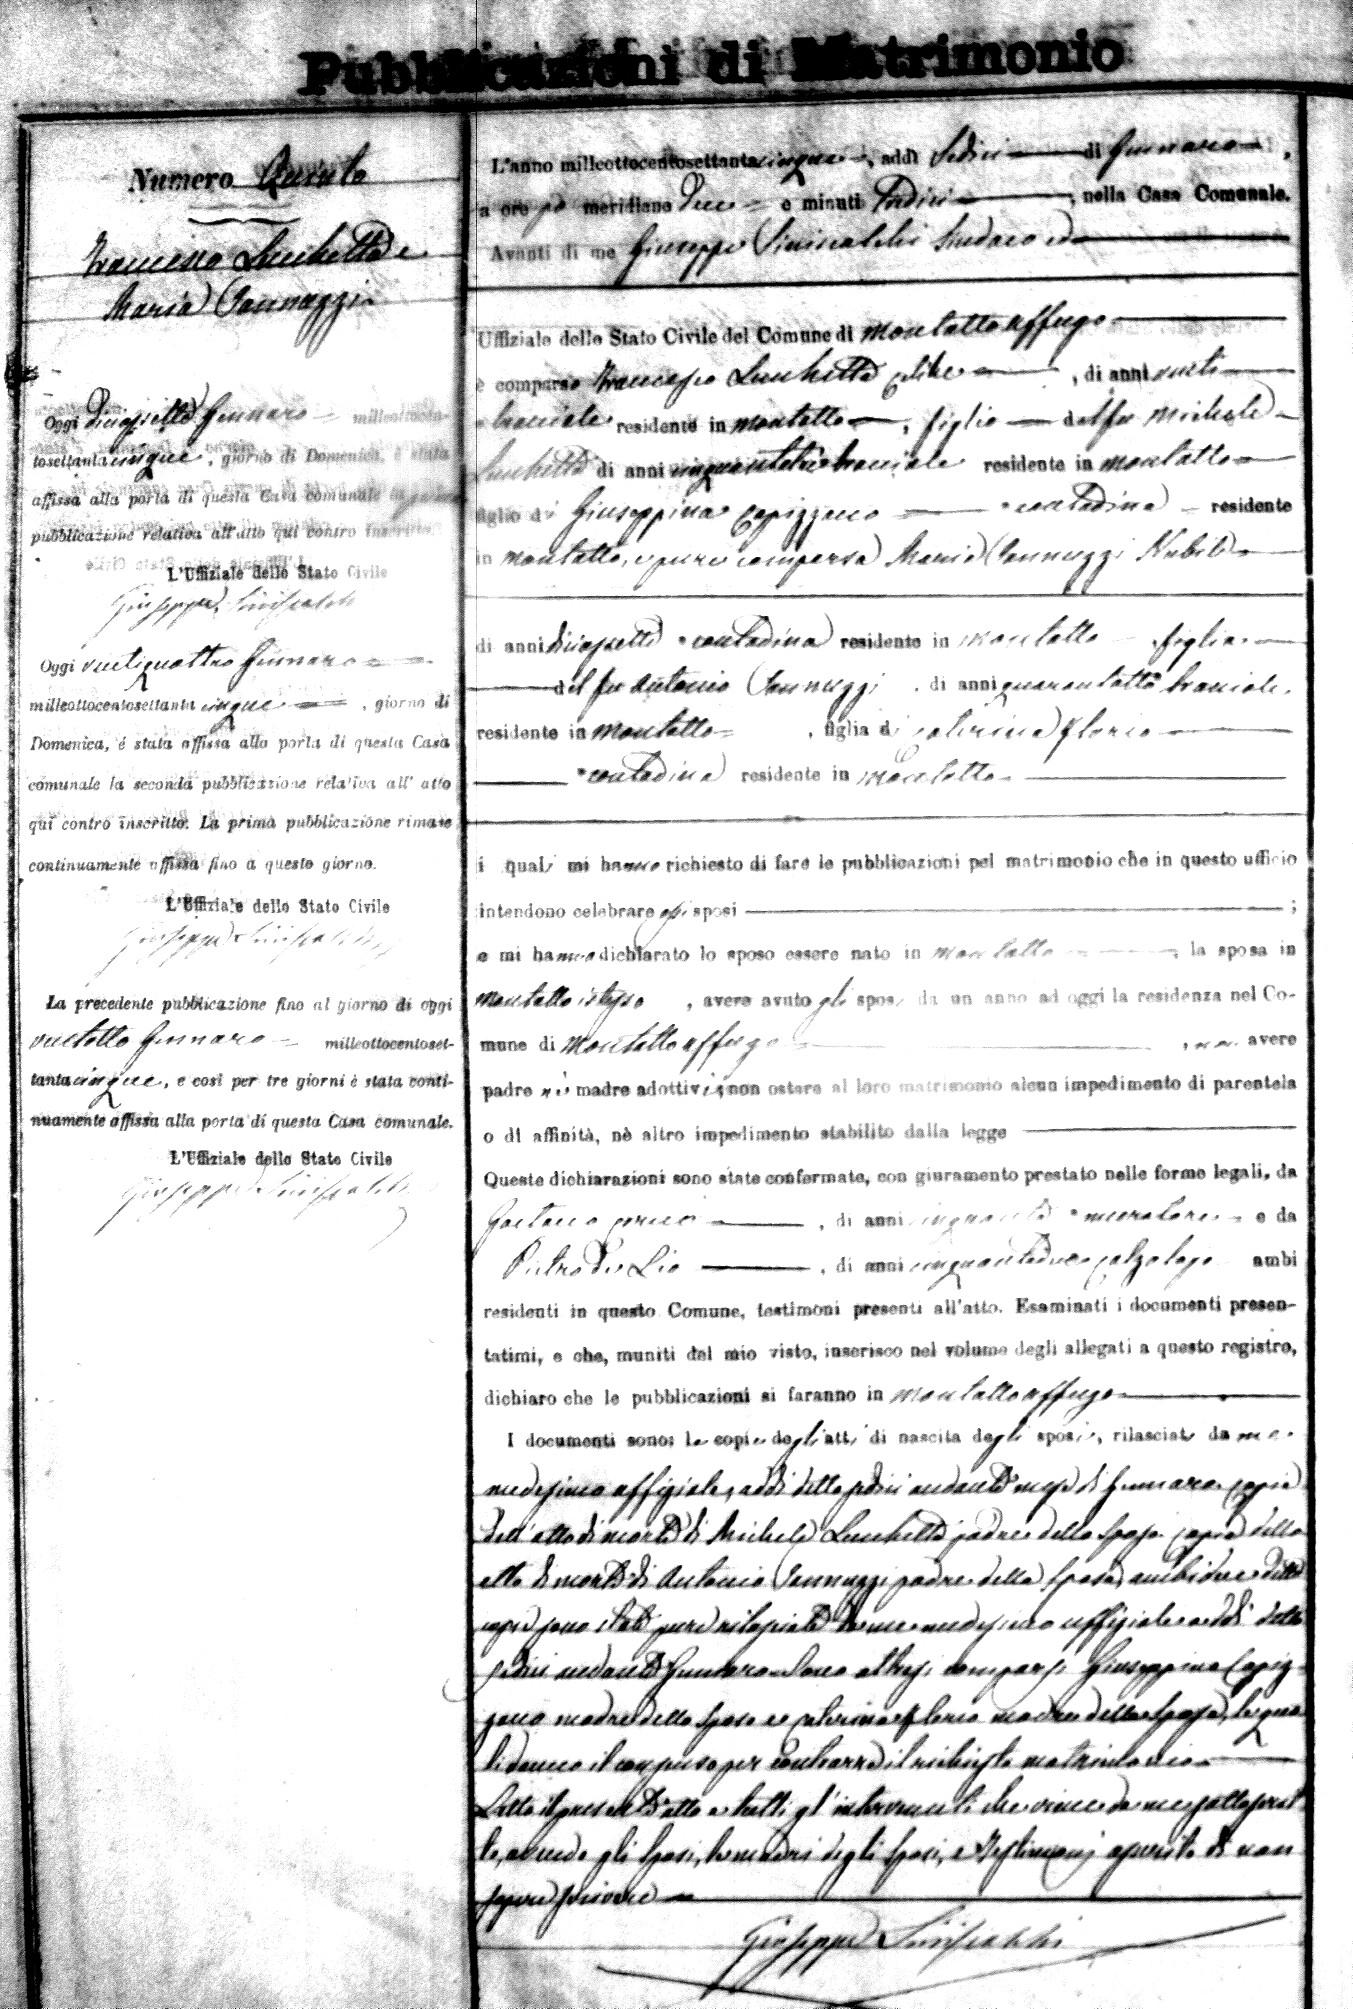 Pubblicazioni di Matrimonio
Numero Quinto
Francesco Lucchetta e
Maria Iannuzzi
Oggi diciassette Gennaro milleottocen-
tosettantacinque, giorno di Domenica, è stata
affissa alla porta di questa Casa comunale la prima
pubblicazione relativa all'atto qui contro inscritto.
L'Uffiziale dello Stato Civile
Giuseppe Siniscalchi
Oggi ventiquattro Gennaro
milleottocentosettantacinque, giorno di
Domenica, è stata affissa alla porta di questa Casa
comunale la seconda pubblicazione relativa all'atto
qui contro inscritto. La prima pubblicazione rimase
continuamente affissa fino a questo giorno.
L'Uffiziale dello Stato Civile
Giuseppe Siniscalchi
La precedente pubblicazione fino al giorno di oggi
ventotto Gennaro milleottocentoset-
tantacinque, e così per tre giorni è stata conti-
nuamente affissa alla porta di questa Casa comunale.
L'Uffiziale dello Stato Civile
Giuseppe Siniscalchi
L'anno milleottocentosettantacinque, addì Sedici di Gennaro,
a ore meridiane e minuti, nella Casa Comunale.
Avanti di me Giuseppe Siniscalchi Sindaco ed
Uffiziale dello Stato Civile del Comune di Montalto Uffugo
è comparso Francesco Lucchetta celibe, di anni venti
bracciale residente in Montalto, figlio del fu Michele
Lucchetta di anni bracciale residente in Montalto
figlio di Giuseppina Capizzano contadina residente
in Montalto, e pure comparsa Maria Iannuzzi Nubile
di anni diciassette contadina residente in Montalto figlia
del fu Antonio Iannuzzi, di anni quarantotto bracciale,
residente in Montalto, figlia di Florio
contadina residente in Montalto
i quali mi hanno richiesto di fare le pubblicazioni pel matrimonio che in questo ufficio
intendono celebrare essi sposi;
e mi hanno dichiarato lo sposo essere nato in Montalto, la sposa in
Montalto istesso, avere avuto gli sposi da un anno ad oggi la residenza nel Co-
mune di Montalto Uffugo, non avere
padre nè madre adottivi, non ostare al loro matrimonio alcun impedimento di parentela
o di affinità, nè altro impedimento stabilito dalla legge
Queste dichiarazioni sono state confermate, con giuramento prestato nelle forme legali, da
Gaetano, di anni cinquanta muratore e da
Pietro De Lio, di anni cinquantadue calzolajo ambi
residenti in questo Comune, testimoni presenti all'atto. Esaminati i documenti presen-
tatimi, e che, muniti del mio visto, inserisco nel volume degli allegati a questo registro,
dichiaro che le pubblicazioni si faranno in Montalto Uffugo
I documenti sono: le copie degli atti di nascita degli sposi, rilasciate da me
medesimo uffiziale, addì detto sedici andante mese di Gennaro copia
dell'atto di morte di Michele Lucchetta padre dello sposo copia dello
atto di morte di Antonio Iannuzzi padre della sposa, ambidue dette
copie sono state pure rilasciate da me medesimo uffiziale addì detto
sedici andante Gennaro. Sono altresì comparse Giuseppina Capiz-
zano madre dello sposo e Florio madre della sposa, le qua-
li danno il consenso per contrarre il richiesto matrimonio
Letto il presente atto a tutti gl'intervenuti che viene da me sottoscrit-
to, avendo gli sposi, le madri degli sposi, e testimonj asserito di non
sapere scrivere
Giuseppe Siniscalchi